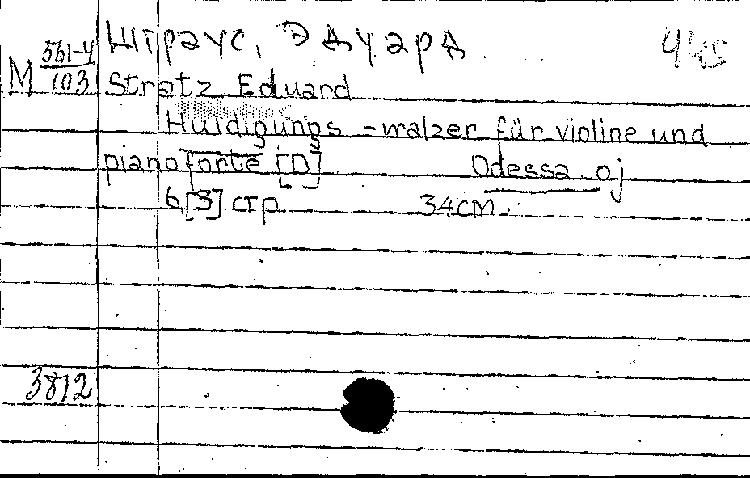 Штраус, Эдуард
М 561-4/103
Stratz Eduard
Huldigungs - walzer für violine und
pianoforte [D] Odessa oj
6[3] стр. 34см.
3812